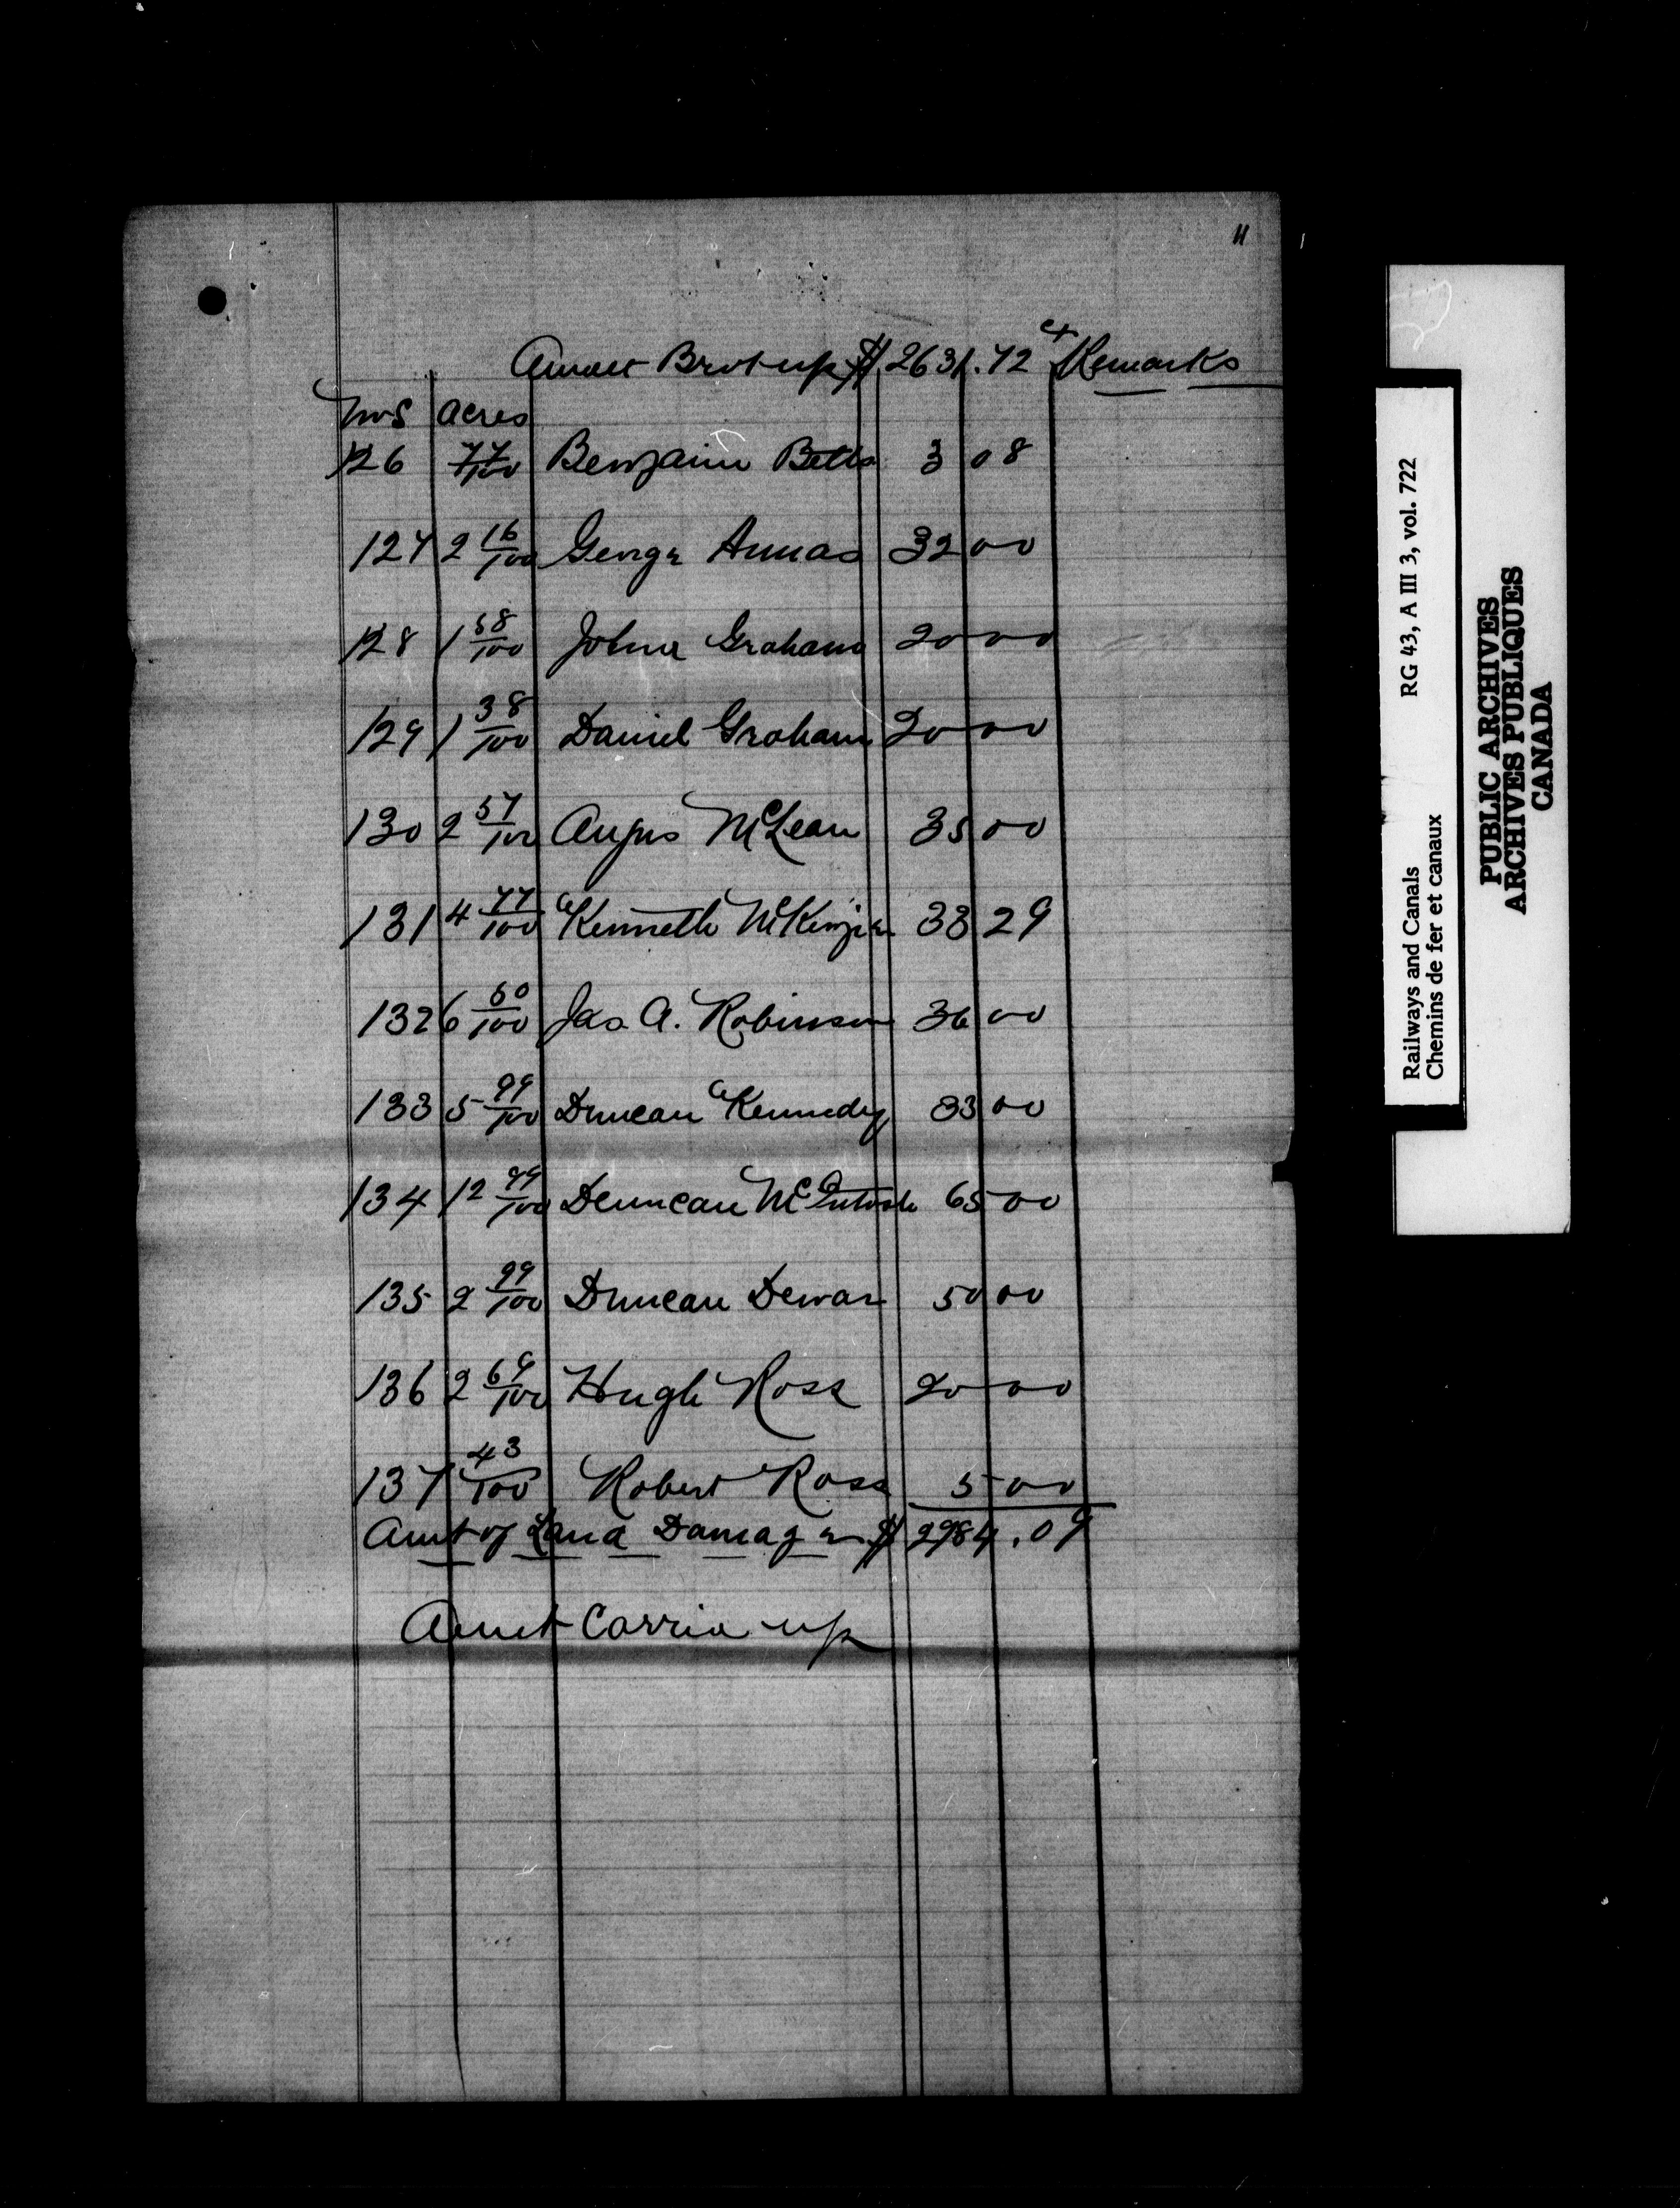 11
Amount Brot up $ 2631.72 cts Remarks
Nos acres
126 77/100 Benjamin Betts 3 08
127 2 16/100 George Annas 32 00
128 1 58/100 John Graham 20 00
129 1 38/100 Daniel Graham 20 00
130 2 57/100 Angus McLean 35 00
131 4 77/100 Kenneth McKenzie 33 29
132 6 50/100 Jas. A. Robinson 36 00
133 5 99/100 Duncan Kennedy 33 00
134 12 99/100 Duncan McIntosh 65 00
135 2 99/100 Duncan Dewar 50 00
136 2 69/100 Hugh Ross 20 00
137 43/100 Robert Ross 5 00
Amt of Land Damages $ 2984.09
Amt Carried up
Railways and Canals RG 43, A III 3, vol. 722
Chemins de fer et canaux
PUBLIC ARCHIVES
ARCHIVES PUBLIQUES
CANADA